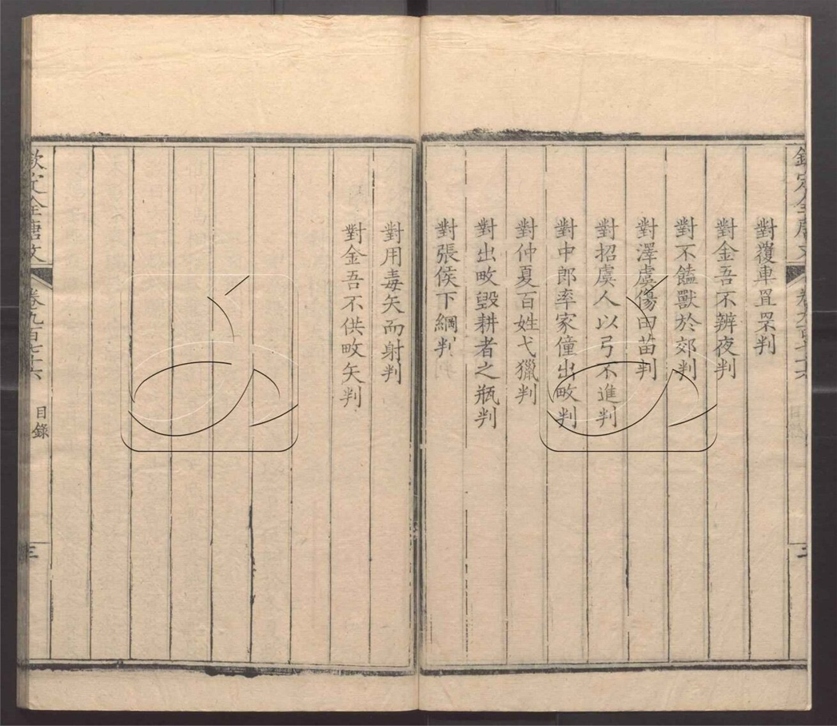 對覆車罝罘判
對金吾不辨夜判
對不饁獸於郊判
對澤虞傷田苗判
對招虞人以弓不進判
對中郎率家僮出畋判
對仲夏百姓弋獵判
對出畋毀耕者之瓶判
對張侯下綱判
對用毒矢而射判
對金吾不供畋矢判
欽定全唐文
卷九百七十六
目錄
三